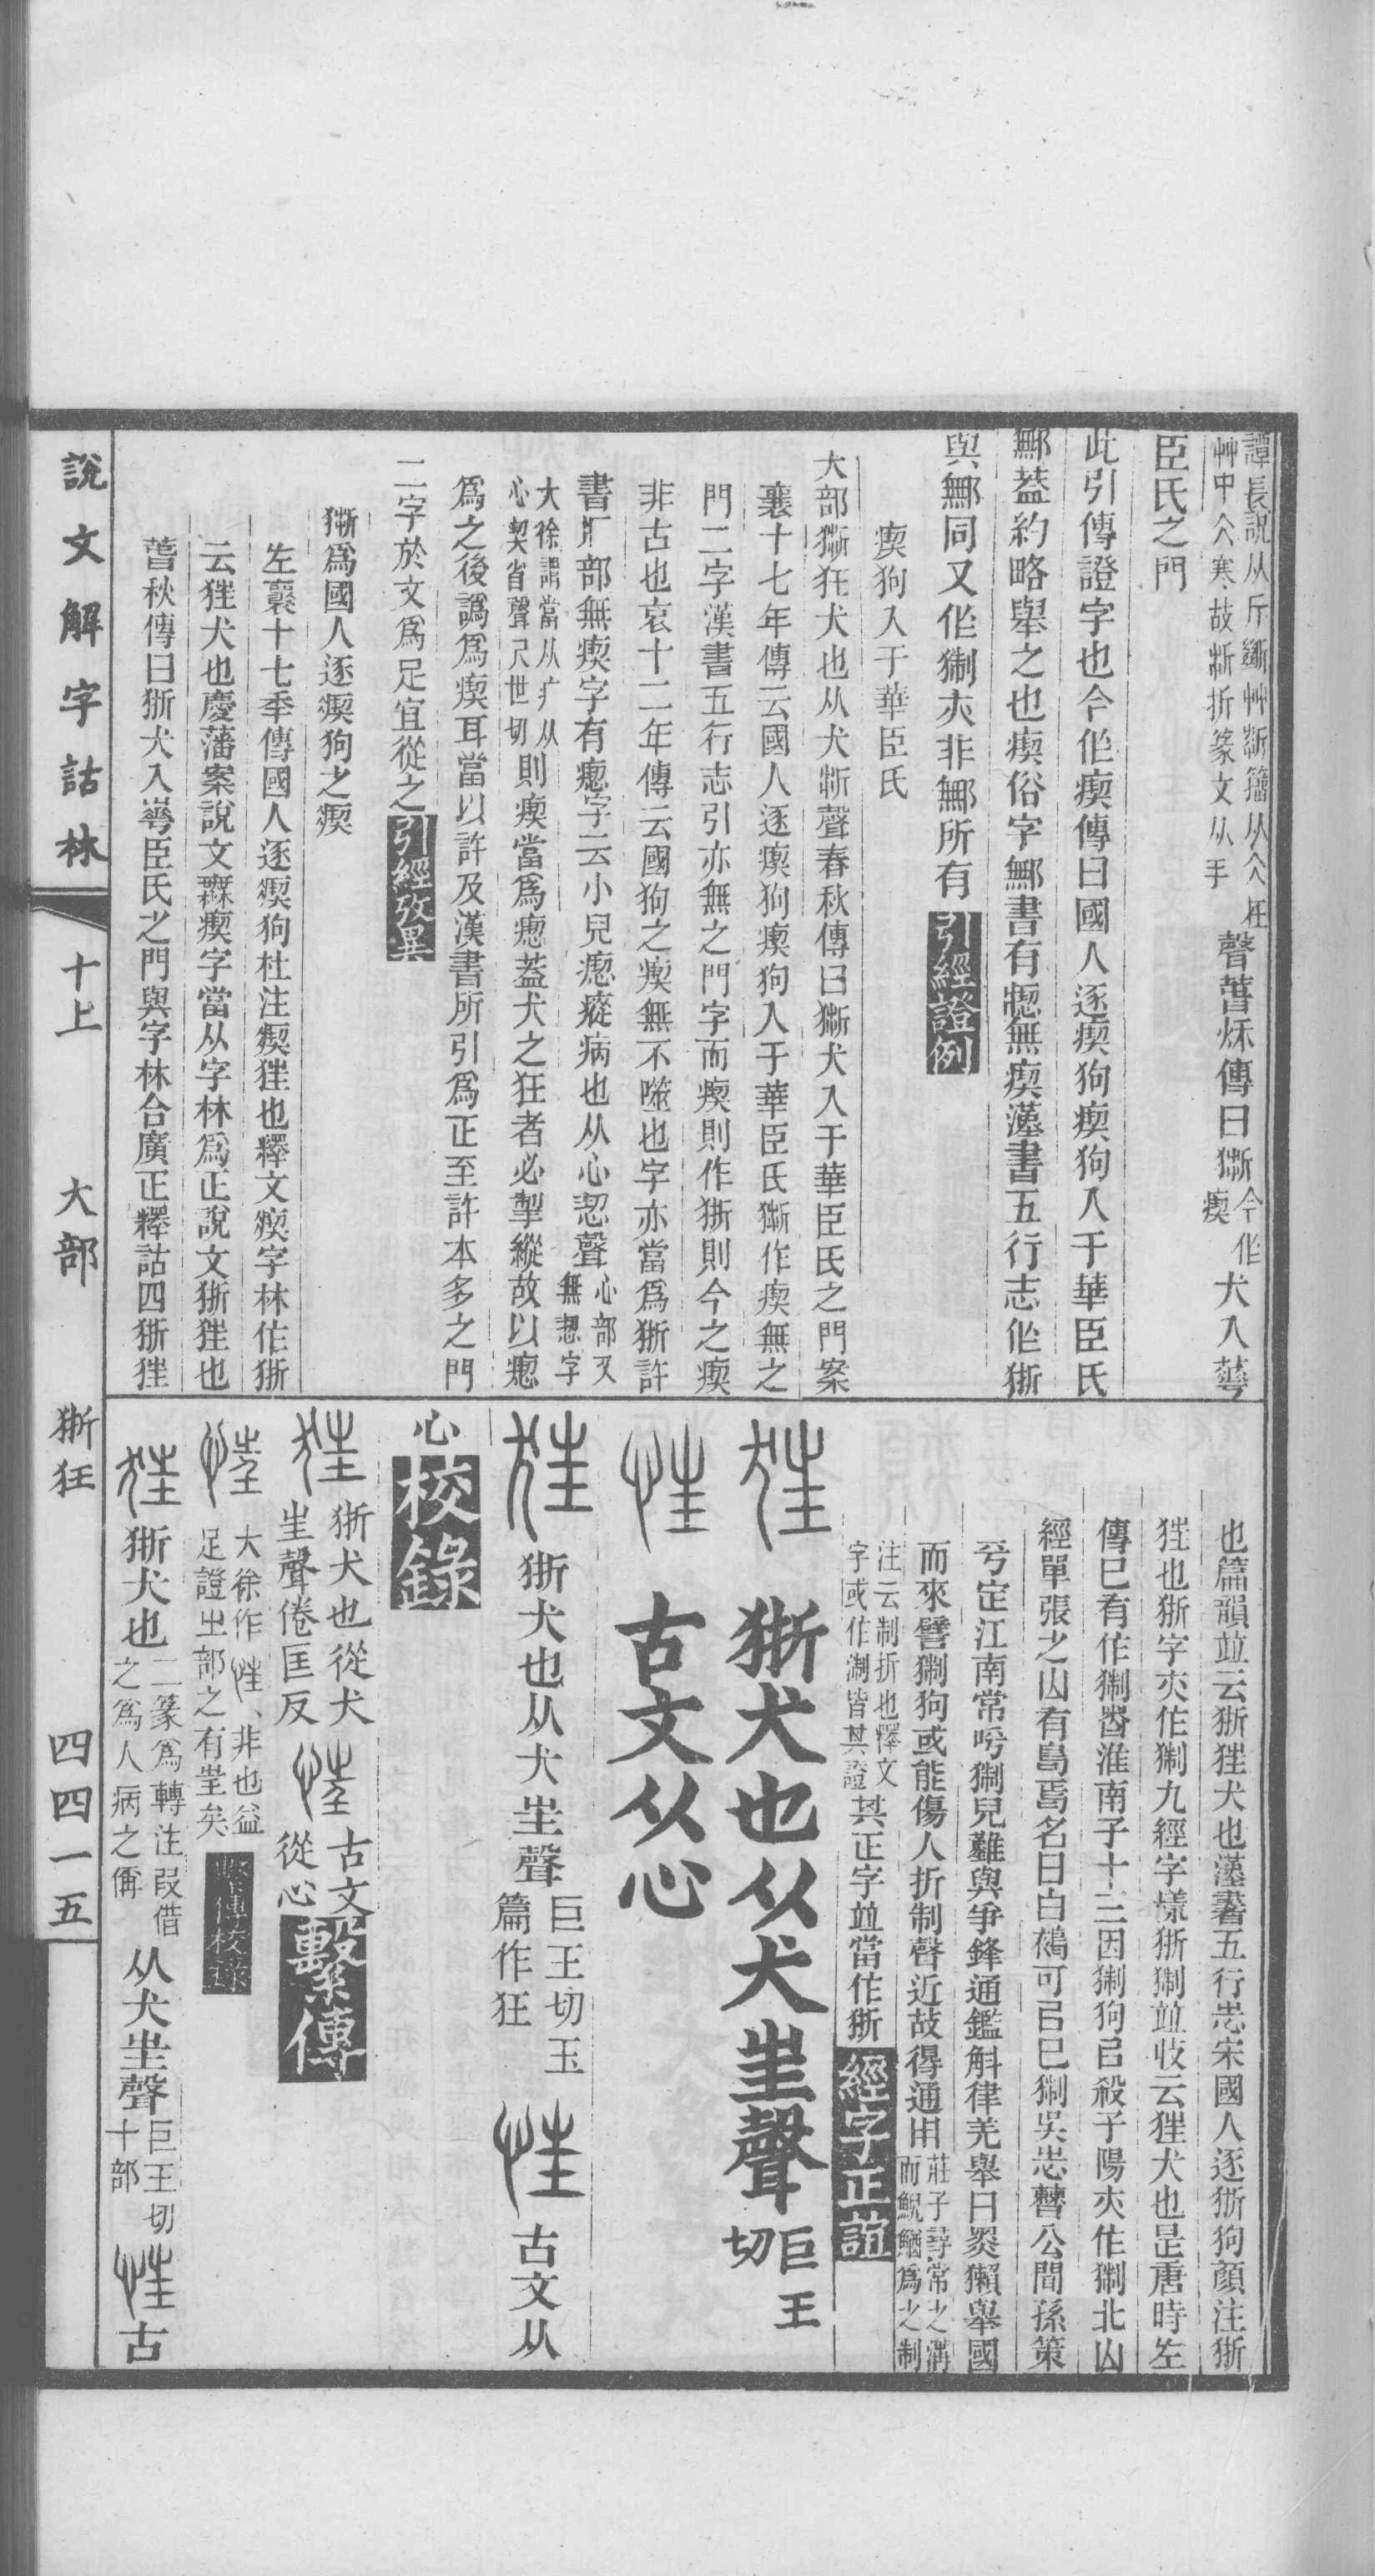 譚長說从斤斷艸𣂚籒从仌
艸中仌寒故𣂚折篆文从手
狂聲萅秋傳曰狾今作瘈犬入華
臣氏之門
此引傳證字也今作瘈傳曰國人逐瘈狗瘈狗入于華臣氏
鄦葢約略舉之也瘈俗字鄦書有瘛無瘈漢書五行志作狾
與鄦同又作猘夾非鄦所有引經證例
瘈狗入于華臣氏
犬部狾狂犬也从犬折聲春秋傳曰狾犬入于華臣氏之門案
襄十七年傳云國人逐瘈狗瘈狗入于華臣氏狾作瘈無之
門二字漢書五行志引亦無之門字而瘈則作狾則今之瘈
非古也哀十二年傳云國狗之瘈無不噬也字亦當爲狾許
書疒部無瘈字有瘛字云小兒瘛瘲病也从心㓞聲心部又無㓞字
大徐謂當从疒从心契省聲尺世切則瘈當爲瘛葢犬之狂者必掣縱故以瘛
爲之後譌爲瘈耳當以許及漢書所引爲正至許本多之門
二字於文爲足宜從之引經攷異
狾爲國人逐瘈狗之瘈
左襄十七季傳國人逐瘈狗杜注瘈狌也釋文瘈字林作狾
云狌犬也慶藩案說文無瘈字當从字林爲正說文狾狌也
萅秋傳曰狾犬入華臣氏之門與字林合廣正釋詁四狾狌
也篇韻竝云狾狌犬也漢書五行志宋國人逐狾狗顏注狾
狌也狾字夾作猘九經字㨾狾猘竝收云狌犬也是唐時左
傳已有作猘者淮南子十三因猘狗㠯殺子陽夾作猘北山
經單張之山有鳥焉名曰白鵺可㠯已猘吳志朁公間孫策
兮定江南常呼猘兒難與爭鋒通鑑斛律羌舉曰黑獺舉國
而來譬猘狗或能傷人折制聲近故得通用莊子尋常之溝而鯢鰌爲之制
注云制折也釋文字或作淛皆其證其正字竝當作狾經字正誼
狌 狾犬也从犬㞷聲巨王切
㤮 古文从心
狌 狾犬也从犬㞷聲巨王切玉篇作狂 㤮 古文从
心校錄
狌 狾犬也從犬㞷聲倦匡反 㤮 古文從心繫傳
㤮 大徐作㤮非也益足證㞢部之有㞷矣繫傳校錄
狌 狾犬也二篆爲轉注叚借之爲人病之偁从犬㞷聲巨王切十部 㤮 古
說文解字詁林 十上 犬部 狾狂 四四一五